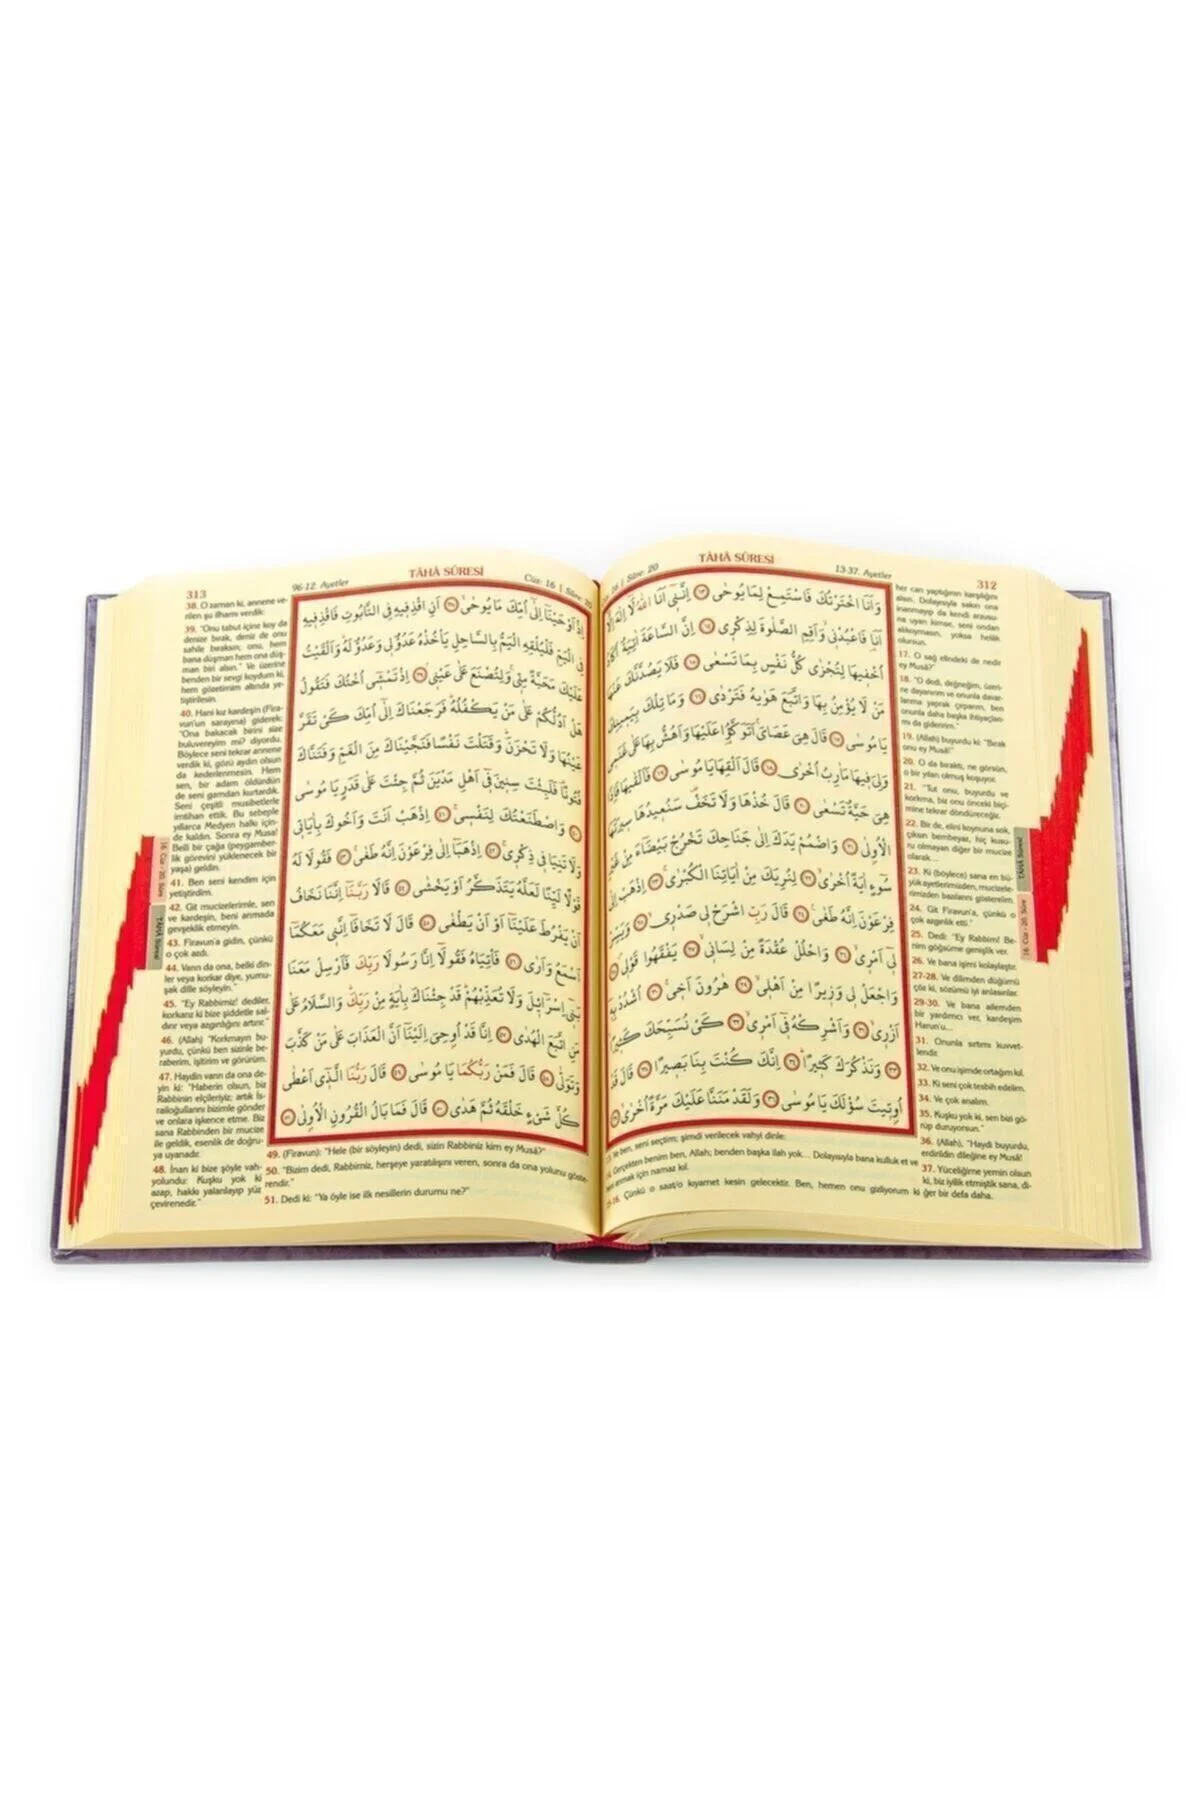 312
13-37. Ayetler
TÂHÂ SÛRESİ
Sûre: 20
وَاَنَا اخْتَرْتُكَ فَاسْتَمِعْ لِمَا يُوحٰى ﴿١٣﴾ اِنَّنٖٓي اَنَا اللّٰهُ لَٓا اِلٰهَ اِلَّٓا
اَنَا۬ فَاعْبُدْنٖي وَاَقِمِ الصَّلٰوةَ لِذِكْرٖي ﴿١٤﴾ اِنَّ السَّاعَةَ اٰتِيَةٌ اَكَادُ
اُخْفٖيهَا لِتُجْزٰى كُلُّ نَفْسٍ بِمَا تَسْعٰى ﴿١٥﴾ فَلَا يَصُدَّنَّكَ عَنْهَا
مَنْ لَا يُؤْمِنُ بِهَا وَاتَّبَعَ هَوٰيهُ فَتَرْدٰى ﴿١٦﴾ وَمَا تِلْكَ بِيَمٖينِكَ
يَا مُوسٰى ﴿١٧﴾ قَالَ هِيَ عَصَايَۚ اَتَوَكَّؤُ۬ا عَلَيْهَا وَاَهُشُّ بِهَا عَلٰى غَنَمٖي
وَلِيَ فٖيهَا مَاٰرِبُ اُخْرٰى ﴿١٨﴾ قَالَ اَلْقِهَا يَا مُوسٰى ﴿١٩﴾ فَاَلْقٰيهَا فَاِذَا
هِيَ حَيَّةٌ تَسْعٰى ﴿٢٠﴾ قَالَ خُذْهَا وَلَا تَخَفْ۠ سَنُعٖيدُهَا سٖيرَتَهَا
الْاُو۫لٰى ﴿٢١﴾ وَاضْمُمْ يَدَكَ اِلٰى جَنَاحِكَ تَخْرُجْ بَيْضَٓاءَ مِنْ غَيْرِ
سُٓوءٍ اٰيَةً اُخْرٰىۙ ﴿٢٢﴾ لِنُرِيَكَ مِنْ اٰيَاتِنَا الْكُبْرٰىۚ ﴿٢٣﴾ اِذْهَبْ اِلٰى
فِرْعَوْنَ اِنَّهُ طَغٰى۟ ﴿٢٤﴾ قَالَ رَبِّ اشْرَحْ لٖي صَدْرٖيۙ ﴿٢٥﴾ وَيَسِّرْ
لٖٓي اَمْرٖيۙ ﴿٢٦﴾ وَاحْلُلْ عُقْدَةً مِنْ لِسَانٖيۙ ﴿٢٧﴾ يَفْقَهُوا قَوْلٖي ﴿٢٨﴾
وَاجْعَلْ لٖي وَزٖيراً مِنْ اَهْلٖيۙ ﴿٢٩﴾ هٰرُونَ اَخٖيۙ ﴿٣٠﴾ اُشْدُدْ بِهٖٓ
اَزْرٖيۙ ﴿٣١﴾ وَاَشْرِكْهُ فٖٓي اَمْرٖيۙ ﴿٣٢﴾ كَيْ نُسَبِّحَكَ كَثٖيراًۙ
﴿٣٣﴾ وَنَذْكُرَكَ كَثٖيراًۜ ﴿٣٤﴾ اِنَّكَ كُنْتَ بِنَا بَصٖيراً ﴿٣٥﴾ قَالَ قَدْ
اُو۫تٖيتَ سُؤْلَكَ يَا مُوسٰى ﴿٣٦﴾ وَلَقَدْ مَنَنَّا عَلَيْكَ مَرَّةً اُخْرٰىۙ ﴿٣٧﴾
13. Ve ben, seni seçtim; şimdi verilecek vahyi dinle:
14. Gerçekten benim ben, Allah; benden başka ilah yok... Dolayısıyla bana kulluk et ve
beni anmak için namaz kıl.
15-16. Çünkü o saat/o kıyamet kesin gelecektir. Ben, hemen onu gizliyorum ki
her can yaptığının karşılığını
alsın. Dolayısıyla sakın ona
inanmayıp da kendi arzusu-
na uyan kimse, seni ondan
alıkoymasın, yoksa helâk
olursun.
17. O sağ elindeki de nedir
ey Musâ?
18. "O dedi, değneğim, üzeri-
ne dayanırım ve onunla davar-
larıma yaprak çırparım, ben
onunla daha başka ihtiyaçları-
mı da gideririm."
19. (Allah) buyurdu ki: "Bırak
onu ey Musâ!"
20. O da bıraktı, ne görsün,
o bir yılan olmuş koşuyor.
21. "Tut onu, buyurdu ve
korkma, biz onu önceki biçi-
mine tekrar döndüreceğiz.
22. Bir de, elini koynuna sok,
çıksın bembeyaz, hiç kusu-
ru olmayan diğer bir mucize
olarak...
23. Ki (böylece) sana en bü-
yük ayetlerimizden, mucizele-
rimizden bazılarını gösterelim.
24. Git Firavun'a, çünkü o
çok azgınlık etti."
25. Dedi: "Ey Rabbim! Be-
nim göğsüme genişlik ver.
26. Ve bana işimi kolaylaştır.
27-28. Ve dilimden düğümü
çöz ki, sözümü iyi anlasınlar.
29-30. Ve bana ailemden
bir yardımcı ver, kardeşim
Harun'u...
31. Onunla sırtımı kuvvet-
lendir.
32. Ve onu işimde ortağım kıl.
33. Ki seni çok tesbih edelim.
34. Ve çok analım.
35. Kuşku yok ki, sen bizi gö-
rüp duruyorsun."
36. (Allah), "Haydi buyurdu,
erdirildin dileğine ey Musâ!
37. Yüceliğime yemin olsun
ki, biz iyilik etmiştik sana, di-
ğer bir defa daha.
TÂHÂ Sûresi
16. Cüz - 20. Sûre
Cüz: 16 | Sûre: 20
TÂHÂ SÛRESİ
96-12. Ayetler
313
اِذْ اَوْحَيْنَٓا اِلٰٓى اُمِّكَ مَا يُوحٰىۙ ﴿٣٨﴾ اَنِ اقْذِفٖيهِ فِي التَّابُوتِ فَاقْذِفٖيهِ
فِي الْيَمِّ فَلْيُلْقِهِ الْيَمُّ بِالسَّاحِلِ يَأْخُذْهُ عَدُوٌّ لٖي وَعَدُوٌّ لَهُۜ وَاَلْقَيْتُ
عَلَيْكَ مَحَبَّةً مِنّٖيۚ وَلِتُصْنَعَ عَلٰى عَيْنٖيۢ ﴿٣٩﴾ اِذْ تَمْشٖٓي اُخْتُكَ فَتَقُولُ
هَلْ اَدُلُّكُمْ عَلٰى مَنْ يَكْفُلُهُۜ فَرَجَعْنَاكَ اِلٰٓى اُمِّكَ كَيْ تَقَرَّ
عَيْنُهَا وَلَا تَحْزَنَۜ وَقَتَلْتَ نَفْساً فَنَجَّيْنَاكَ مِنَ الْغَمِّ وَفَتَنَّاكَ
فُتُوناً۠ فَلَبِثْتَ سِنٖينَ فٖٓي اَهْلِ مَدْيَنَ ثُمَّ جِئْتَ عَلٰى قَدَرٍ يَا مُوسٰى
﴿٤٠﴾ وَاصْطَنَعْتُكَ لِنَفْسٖيۚ ﴿٤١﴾ اِذْهَبْ اَنْتَ وَاَخُوكَ بِاٰيَاتٖي
وَلَا تَنِيَا فٖي ذِكْرٖيۚ ﴿٤٢﴾ اِذْهَبَٓا اِلٰى فِرْعَوْنَ اِنَّهُ طَغٰىۚ ﴿٤٣﴾ فَقُولَا لَهُ
قَوْلاً لَيِّناً لَعَلَّهُ يَتَذَكَّرُ اَوْ يَخْشٰى ﴿٤٤﴾ قَالَا رَبَّنَٓا اِنَّنَا نَخَافُ
اَنْ يَفْرُطَ عَلَيْنَٓا اَوْ اَنْ يَطْغٰى ﴿٤٥﴾ قَالَ لَا تَخَافَٓا اِنَّنٖي مَعَكُمَٓا
اَسْمَعُ وَاَرٰى ﴿٤٦﴾ فَأْتِيَاهُ فَقُولَٓا اِنَّا رَسُولَا رَبِّكَ فَاَرْسِلْ مَعَنَا
بَنٖٓي اِسْرَٓائٖلَ وَلَا تُعَذِّبْهُمْۜ قَدْ جِئْنَاكَ بِاٰيَةٍ مِنْ رَبِّكَۜ وَالسَّلَامُ عَلٰى
مَنِ اتَّبَعَ الْهُدٰى ﴿٤٧﴾ اِنَّا قَدْ اُو۫حِيَ اِلَيْنَٓا اَنَّ الْعَذَابَ عَلٰى مَنْ كَذَّبَ
وَتَوَلّٰى ﴿٤٨﴾ قَالَ فَمَنْ رَبُّكُمَا يَا مُوسٰى ﴿٤٩﴾ قَالَ رَبُّنَا الَّذٖٓي اَعْطٰى
كُلَّ شَيْءٍ خَلْقَهُ ثُمَّ هَدٰى ﴿٥٠﴾ قَالَ فَمَا بَالُ الْقُرُونِ الْاُو۫لٰى ﴿٥١﴾
38. O zaman ki, annene ve-
rilen şu ilhamı verdik:
39. "Onu tabut içine koy da
denize bırak, deniz de onu
sahile bıraksın; onu, hem
bana düşman hem ona düş-
man biri alsın." Ve üzerine
benden bir sevgi koydum ki,
hem gözetimim altında ye-
tiştirilesin.
40. Hani kız kardeşin (Fira-
vun'un sarayına) giderek:
"Ona bakacak birini size
buluvereyim mi? diyordu.
Böylece seni tekrar annene
verdik ki, gözü aydın olsun
da kederlenmesin. Hem
sen, bir adam öldürdün
de seni gamdan kurtardık.
Seni çeşitli musibetlerle
imtihan ettik. Bu sebeple
yıllarca Medyen halkı için-
de kaldın. Sonra ey Musa!
Belli bir çağa (peygamber-
lik görevini yüklenecek bir
yaşa) geldin.
41. Ben seni kendim için
yetiştirdim.
42. Git mucizelerimle, sen
ve kardeşin, beni anmada
gevşeklik etmeyin.
43. Firavun'a gidin, çünkü
o çok azdı.
44. Varın da ona, belki din-
ler veya korkar diye, yumu-
şak dille söyleyin."
45. "Ey Rabbimiz! dediler,
korkarız ki bize şiddetle sal-
dırır veya azgınlığını artırır."
46. (Allah) "Korkmayın bu-
yurdu, çünkü ben sizinle be-
raberim, işitirim ve görürüm.
47. Haydin varın da ona de-
yin ki: "Haberin olsun, biz
Rabbinin elçileriyiz; artık İs-
railoğullarını bizimle gönder
ve onlara işkence etme. Biz
sana Rabbinden bir mucize
ile geldik, esenlik de doğru-
ya uyanadır.
48. İnan ki bize şöyle vah-
yolundu: Kuşku yok ki
azap, hakkı yalanlayıp yüz
çevirenedir."
49. (Firavun): "Hele (bir söyleyin) dedi, sizin Rabbiniz kim ey Musâ?"
50. "Bizim dedi, Rabbimiz, herşeye yaratılışını veren, sonra da ona yolunu göste-
rendir."
51. Dedi ki: "Ya öyle ise ilk nesillerin durumu ne?"
16. Cüz - 20. Sûre
TÂHÂ Sûresi